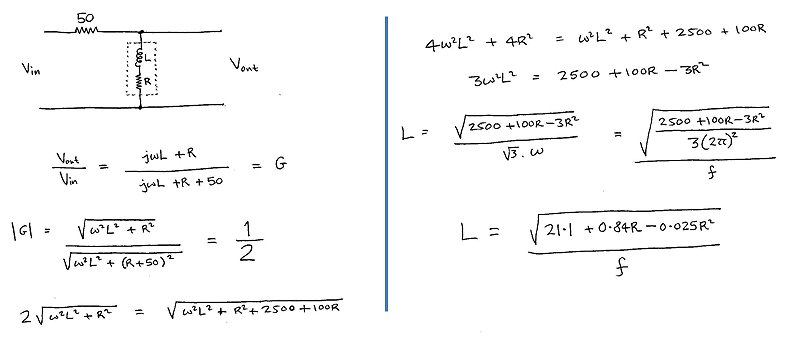 50
L
R
Vin
Vout
Vout/Vin = (jωL + R)/(jωL + R + 50) = G
|G| = √(ω²L² + R²)/√(ω²L² + (R+50)²) = 1/2
2√(ω²L² + R²) = √(ω²L² + R² + 2500 + 100R)
4ω²L² + 4R² = ω²L² + R² + 2500 + 100R
3ω²L² = 2500 + 100R − 3R²
L = √(2500 + 100R − 3R²)/(√3 · ω) = √((2500 + 100R − 3R²)/(3(2π)²))/f
L = √(21·1 + 0·84R − 0·025R²)/f